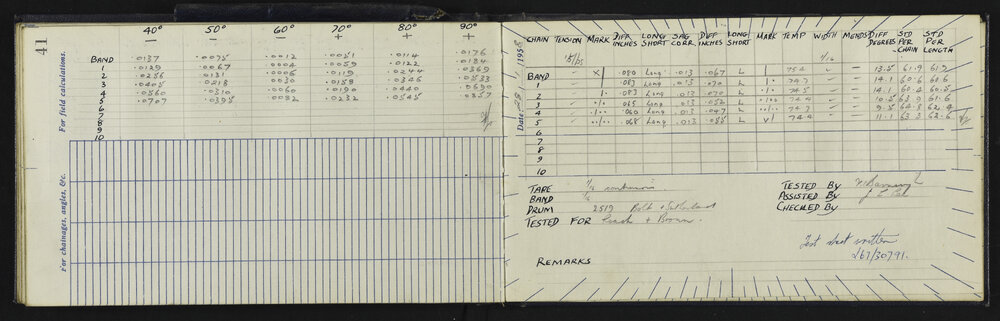 41
For field calculations.
For chainages, angles, &c.
40° 50° 60° 70° 80° 90°
— — — + + +
BAND .0137 .0075 .0012 .0051 .0114 .0176
1 .0129 .0067 .0004 .0059 .0122 .0184
2 .0256 .0131 .0006 .0119 .0244 .0369
3 .0405 .0218 .0030 .0158 .0346 .0533
4 .0560 .0310 .0060 .0190 .0440 .0690
5 .0707 .0395 .0082 .0232 .0545 .0857
6
7
8
9
10
Date: 28 1 1958
CHAIN TENSION MARK DIFF INCHES LONG SHORT SAG CORR. DIFF INCHES LONG SHORT MARK TEMP WIDTH MENDS DIFF DEGREES STD PER CHAIN STD PER LENGTH
BAND X .080 Long .013 .067 L 75.4 13.5 61.9 61.9
1 .083 Long .013 .070 L 74.7 14.1 60.6 61.3
2 .083 Long .013 .070 L 74.5 14.1 60.4 60.5
3 .065 Long .013 .052 L 74.4 10.5 63.9 61.6
4 .060 Long .013 .047 L 74.3 9.5 64.8 62.4
5 .068 Long .013 .055 L 74.4 11.1 63.3 62.6
6
7
8
9
10
TAPE 1/16 continuous
BAND 1/16
DRUM 2519
TESTED FOR & Brown.
TESTED BY
ASSISTED BY
CHECKED BY
Test sheet written
L67/30791.
REMARKS